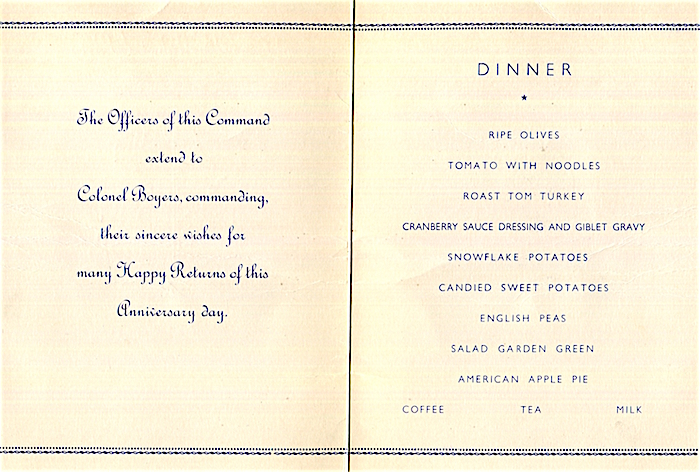 The Officers of this Command
extend to
Colonel Boyers, commanding,
their sincere wishes for
many Happy Returns of this
Anniversary day.
DINNER
RIPE OLIVES
TOMATO WITH NOODLES
ROAST TOM TURKEY
CRANBERRY SAUCE DRESSING AND GIBLET GRAVY
SNOWFLAKE POTATOES
CANDIED SWEET POTATOES
ENGLISH PEAS
SALAD GARDEN GREEN
AMERICAN APPLE PIE
COFFEE TEA MILK